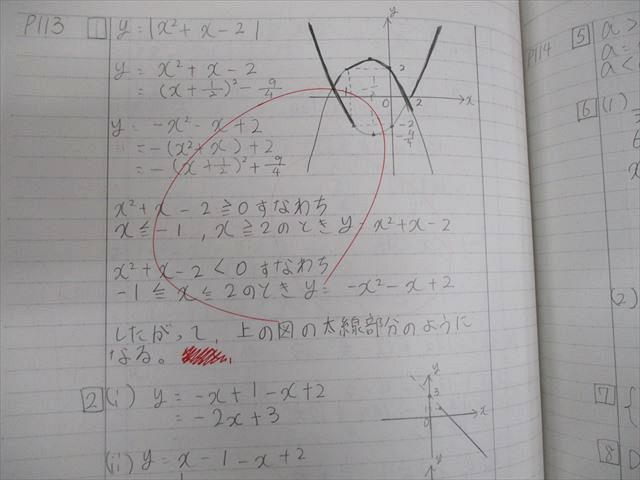 P113 1 y = |x² + x - 2|
y = x² + x - 2
= (x + 1/2)² - 9/4
y = -x² - x + 2
= -(x² + x) + 2
= -(x + 1/2)² + 9/4
x² + x - 2 ≧ 0 すなわち
x ≦ -1 , x ≧ 2 のとき y = x² + x - 2
x² + x - 2 < 0 すなわち
-1 ≦ x ≦ 2 のとき y = -x² - x + 2
したがって、上の図の太線部分のように
なる。
2 (i) y = -x + 1 - x + 2
= -2x + 3
(ii) y = x - 1 - x + 2
y
2
-1
0
2
x
-2
y
3
0
x
y
P114 5 a >
a =
a <
6 (1)
x
(2)
7 {
8 D